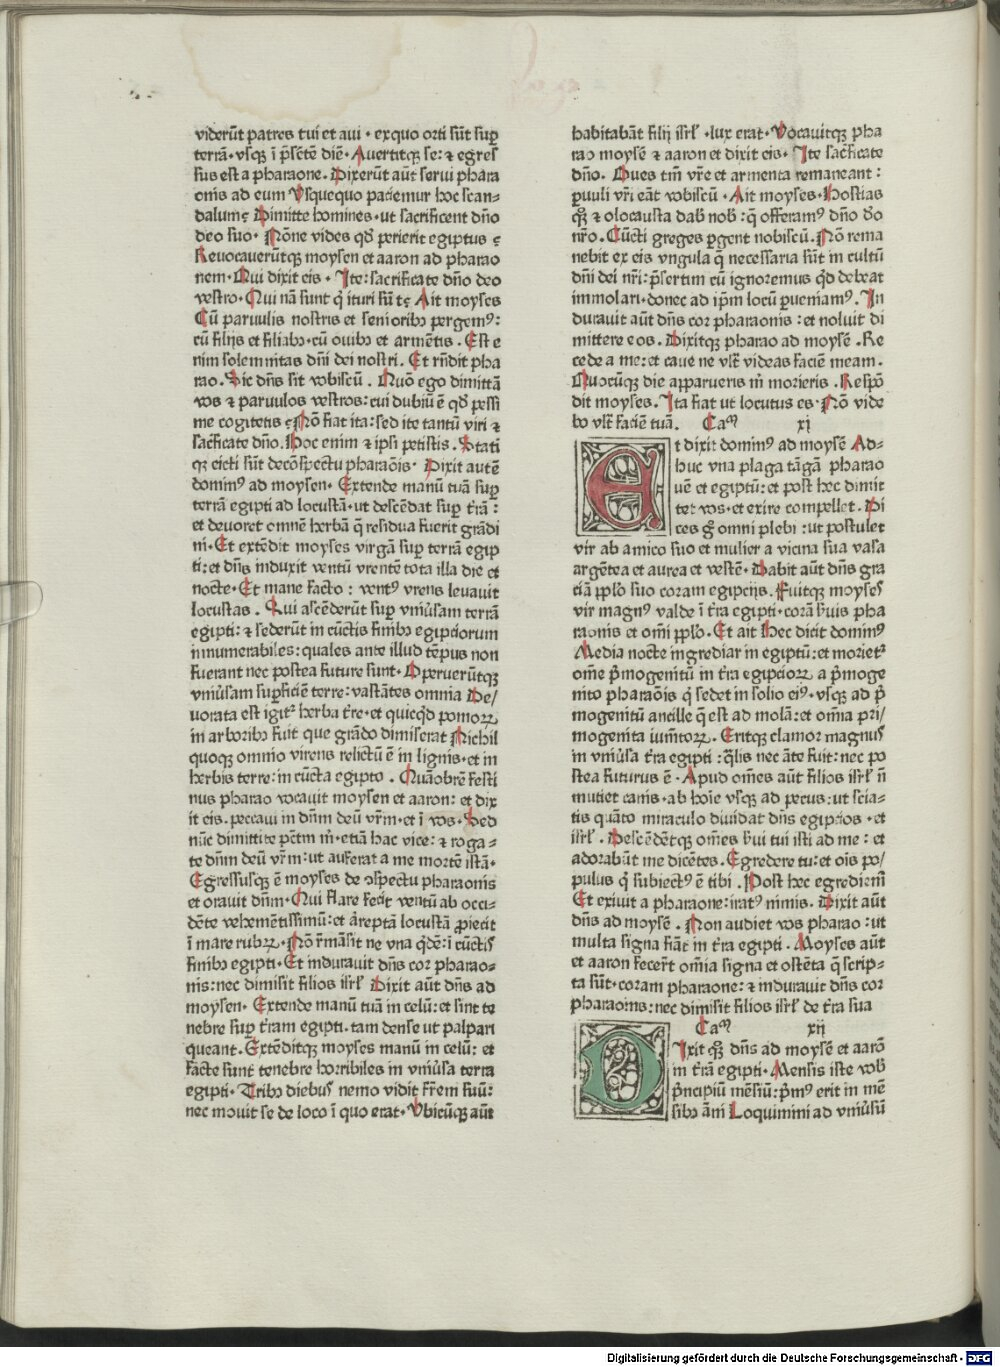 viderūt patres tui et aui · exquo orti sūt suꝑ
terrā · vsqꝫ ī p̄sētē diē · Auertitqꝫ se: ⁊ egres
sus est a pharaone. Dixerūt aūt serui phara
onis ad eum Vsquequo patiemur hoc scan-
dalum⸮ Dimitte homines · ut sacrificent dn̄o
deo suo · Nōne vides qd̓ perierit egiptus ⸮
Reuocauerūtqꝫ moysen et aaron ad pharao
nem · Qui dixit eis · Ite: sacrificate dn̄o deo
vestro · Qui nā sunt q̓ ituri sūt⸮ Ait moyses
Cū paruulis nostris et seniorib⁹ pergem⁹:
cū filijs et filiab⁹: cū ouib⁹ et armētis · Est e
nim solemnitas dn̄i dei nostri. Et rn̄dit pha
rao. Sic dn̄s sit vobiscū. Quō ego dimittā
vos ⁊ paruulos vestros: cui dubiū ē qd̓ pessi
me cogitetis ⸮ Nō fiat ita: sed ite tantū viri ⁊
sac̓ficate dn̄o. Hoc enim ⁊ ip̄i petistis. Stati
qꝫ eicti sūt decōspectu pharaōis · Dixit autē
domin⁹ ad moysen · Extende manū tuā suꝑ
terrā egipti ad locustā · ut descēdat suꝑ t̓rā :
et deuoret omnē herbā q̄ residua fuerit grādi
ni · Et extēdit moyses virgā suꝑ terrā egip
ti: et dn̄s induxit ventū vrentē tota illa die et
nocte · Et mane facto : vent⁹ vrens leuauit
locustas . Qui ascēderūt suꝑ vniu̓sam terrā
egipti: ⁊ sederūt in cūctis finib⁹ egiptiorum
innumerabiles: quales ante illud tēpus non
fuerant nec postea future sunt · Operuerūtqꝫ
vniu̓sam suꝑficiē terre: vastātes omnia De/
uorata est igit᷑ herba t̓re · et quicq̓d pomoꝝ
in arborib⁹ fuit que grādo dimiserat Nichil
quoqꝫ omnino virens relictū ē in lignis · et in
herbis terre: in cūcta egipto . Quāobrē festi
nus pharao vocauit moysen et aaron: et dix
it eis. peccaui in dn̄m deū vr̄m · et ī vos · Sed
nūc dimittite pc̄tm m̓ · etiā hac vice: ⁊ roga-
te dn̄m deū vr̄m: ut auferat a me mortē istā ·
Egressusqꝫ ē moyses de ↄspectu pharaonis
et orauit dn̄m · Qui flare fecit ventū ab occi-
dēte vehemētissimū: et ar̓eptā locustā ꝓiecit
ī mare rubꝝ · Nō r̓māsit ne vna q̓dē: ī cūctis
finib⁹ egipti · Et indurauit dn̄s cor pharao-
nis: nec dimisit filios isrl̓ Dixit aūt dn̄s ad
moysen · Extende manū tuā in celū: et sint te
nebre suꝑ t̓ram egipti. tam dense ut palpari
queant. Extēditqꝫ moyses manū in celū: et
facte sunt tenebre horribiles in vniu̓sa terra
egipti · Trib⁹ diebus nemo vidit fr̄em suū:
nec mouit se de loco ī quo erat · Vbicūqꝫ aūt
habitabāt filij isrl̓ · lux erat · Vocauitqꝫ pha
rao moysē ⁊ aaron et dixit eis · Ite sac̓ficate
dn̄o. Oues tm̄ vr̄e et armenta remaneant :
ꝑuuli vr̄i eāt vobiscū · Ait moyses · Hostias
qꝫ ⁊ olocausta dab̓ nob̓ : q̄ offeram⁹ dn̄o d̓o
nr̄o. Cūcti greges ꝑgent nobiscū. Nō rema
nebit ex eis vngula q̄ necessaria sūt in cultū
dn̄i dei nr̄i: p̄sertim cū ignoremus q̓d debeat
immolari · donec ad ip̄m locū ꝑueniam⁹. In
durauit aūt dn̄s cor pharaonis : et noluit di
mittere eos. Dixitqꝫ pharao ad moysē . Re
cede a me: et caue ne vlt̓ videas faciē meam.
Quocūqꝫ die apparueris m̓ morieris. Respō
dit moyses. Ita fiat ut locutus es · Nō vide
bo vlt̓ faciē tuā. Caᵐ xi
Et dixit domin⁹ ad moysē Ad-
huc vna plaga tāgā pharao
nē et egiptū: et post hec dimit
tet vos · et exire compellet. Di
ces gͦ omni plebi : ut postulet
vir ab amico suo et mulier a vicina sua vasa
argētea et aurea et vestē · Dabit aūt dn̄s gra
tiā pp̄lo suo coram egiptijs. Fuitqꝫ moyses
vir magn⁹ valde ī t̓ra egipti · corā s̓uis pha
raonis et om̄i pp̄lo · Et ait Hec dicit domin⁹
Media nocte ingrediar in egiptū: et moriet᷑
om̄e p̄mogenitū in t̓ra egiptioꝝ a p̄moge
nito pharaōis q̓ sedet in solio ei⁹ · vsqꝫ ad p̄
mogenitū ancille q̄ est ad molā: et om̄ia pri/
mogenita ium̄toꝝ. Eritqꝫ clamor magnus
in vniu̓sa t̓ra egipti : q̄lis nec āte fuit: nec po
stea futurus ē · Apud om̄es aūt filios isrl̓ n̄
mutiet canis · ab hoīe vsqꝫ ad pecus: ut scia-
tis quāto miraculo diuidat dn̄s egiptios · et
isrl̓. Descēdētqꝫ om̄es s̓ui tui isti ad me : et
adorabūt me dicētes. Egredere tu: et ois po/
pulus q̓ subiect⁹ ē tibi . Post hec egrediem̄
Et exiuit a pharaone: irat⁹ nimis. Dixit aūt
dn̄s ad moysē . Non audiet vos pharao : ut
multa signa fiāt in t̓ra egipti. Moyses aūt
et aaron fecer̄t om̄ia signa et ostēta q̄ scrip-
ta sūt · coram pharaone: ⁊ indurauit dn̄s cor
pharaonis: nec dimisit filios isrl̓ de t̓ra sua
Caᵐ xij
Dixit qꝫ dn̄s ad moysē et aarō
in t̓rā egipti · Mensis iste vob̓
p̄ncipiū mēsiū: p̄m⁹ erit in mē
sib⁹ āni Loquimini ad vniu̓sū
Digitalisierung gefördert durch die Deutsche Forschungsgemeinschaft - DFG